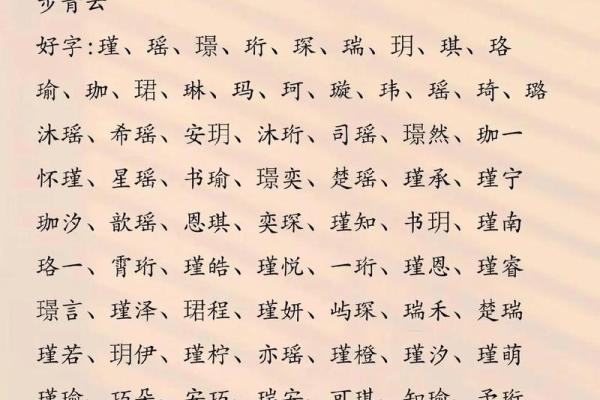 步青云
好字:瑾、瑶、璟、珩、琛、瑞、玥、琪、珞
瑜、珈、珺、琳、玛、珂、璇、玮、瑶、琦、璐
沐瑶、希瑶、安玥、沐珩、司瑶、璟然、珈一
怀瑾、星瑶、书瑜、璟奕、楚瑶、瑾承、瑾宁
珈汐、歆瑶、恩琪、奕琛、瑾知、书玥、瑾南
珞一、霄珩、瑾皓、瑾悦、一珩、瑾恩、瑾睿
璟言、瑾泽、珺程、瑾妍、屿琛、瑞禾、楚瑞
瑾若、玥伊、瑾柠、亦瑶、瑾橙、瑾汐、瑾萌
瑾瑜、巧朵、安巧、瑞安、可琪、知瑜、予珩